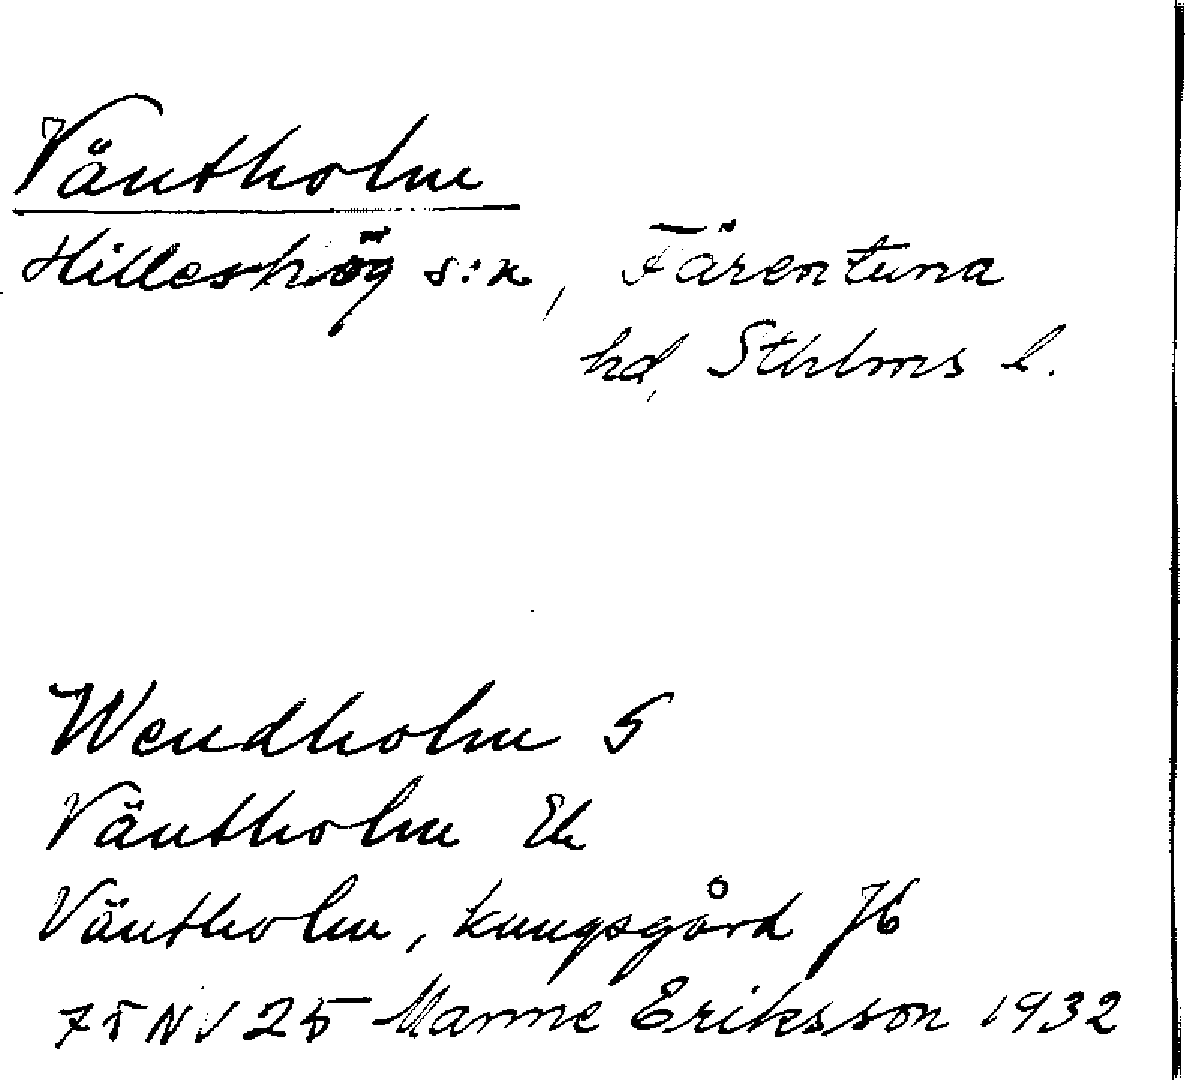 Väntholm
Hilleshög s:n, Färentuna
hd, Sthlms l.
Wendholm S
Väntholm Ek
Väntholm, kungsgård Jb
75 NV 25 Manne Eriksson 1932